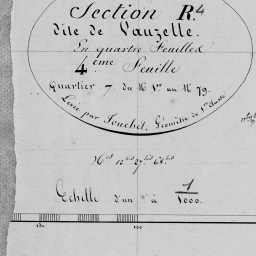 Section R.4
dite de Lauzelle.
En quatre Feuilles
4.ème Feuille
Quartier 7 du N° 1er au N° 79.
Levée par Fouchet, Géomètre de 1re classe
Echelle d'un à 1/1000.
100